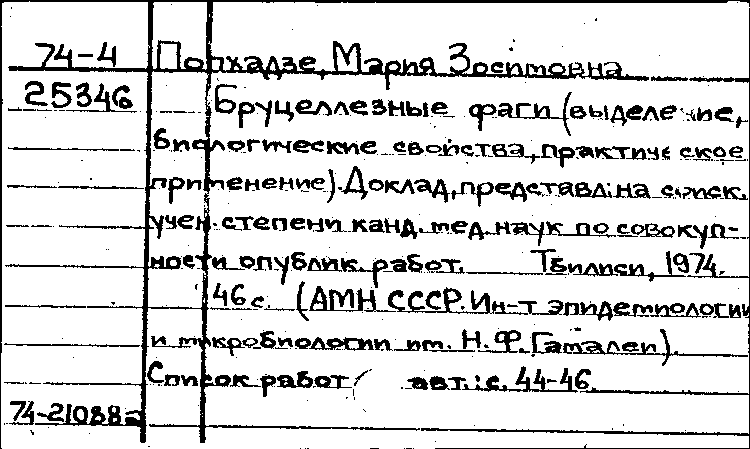 74-4 Попхадзе, Мария Зосимовна
25346 Бруцеллезные фаги (выделение,
биологические свойства, практическое
применение). Доклад, представл. на соиск.
учен. степени канд. мед. наук по совокуп-
ности опублик. работ. Тбилиси, 1974.
46 с. (АМН СССР. Ин-т эпидемиологии
и микробиологии им. Н.Ф. Гамалеи).
Список работ авт.: с. 44-46.
74-21088